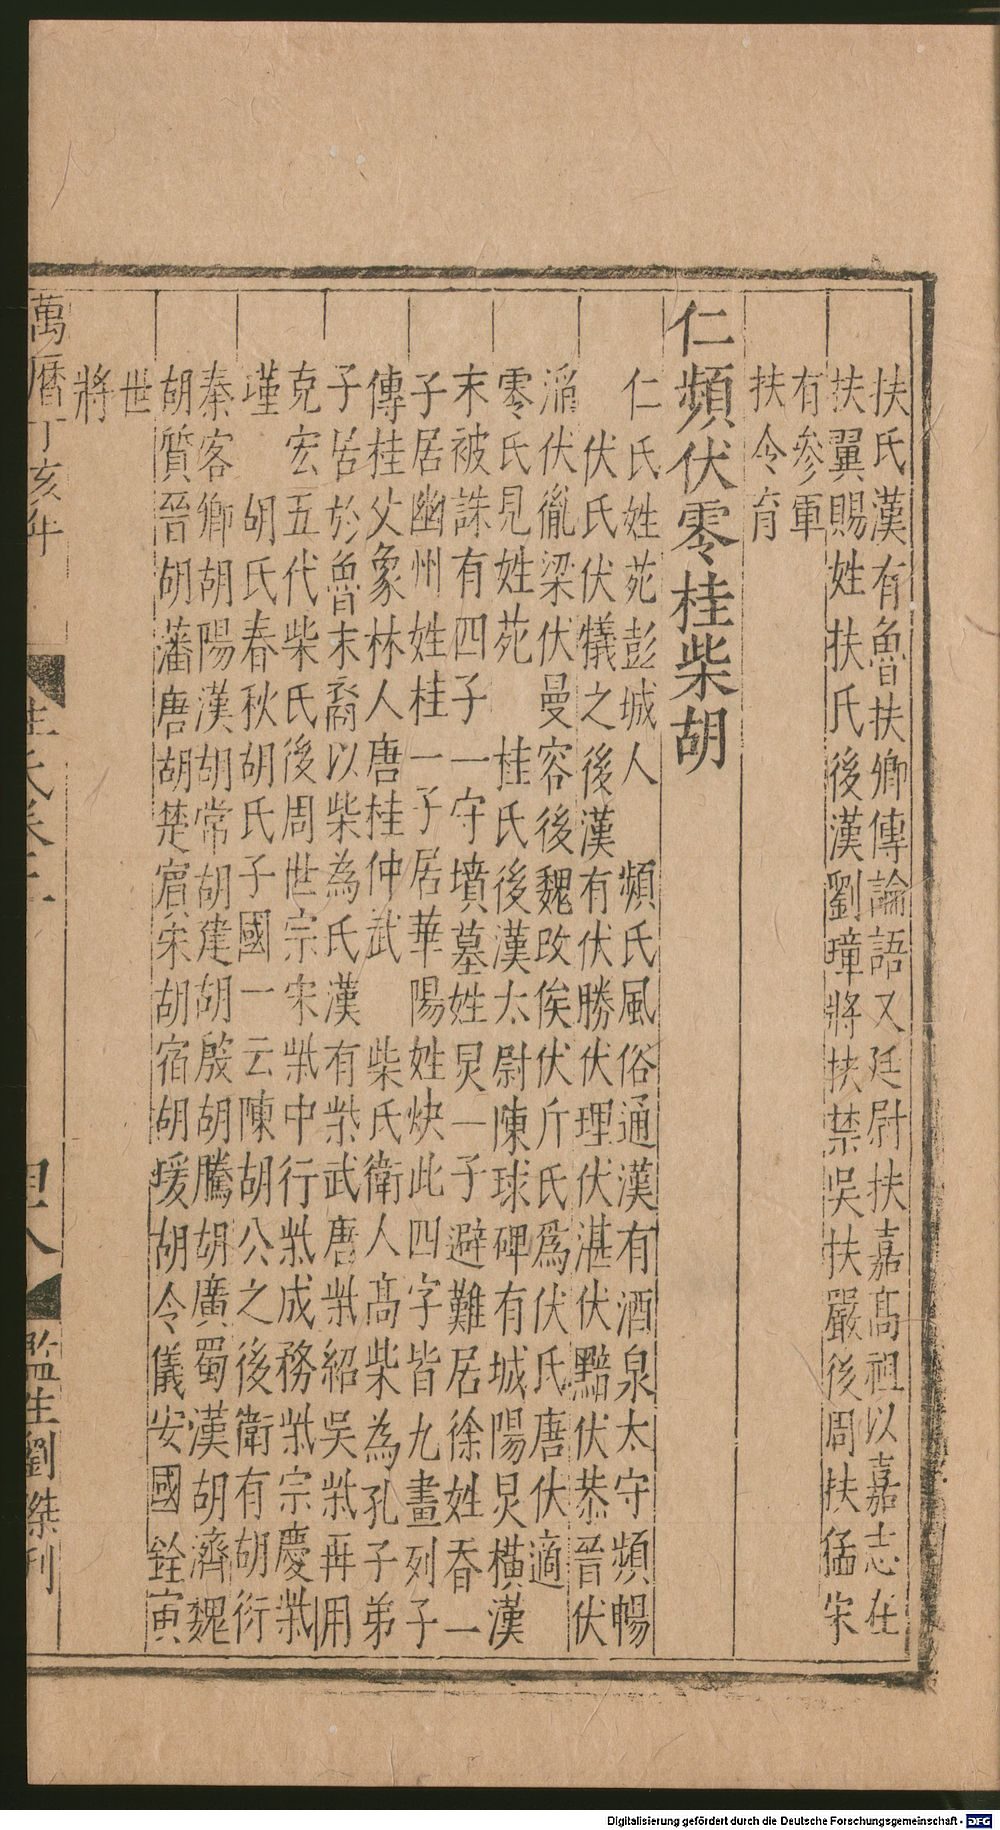 扶氏漢有魯扶卿傳論語又廷尉扶嘉高祖以嘉志在
扶翼賜姓扶氏後漢劉璋將扶禁吳扶嚴後周扶猛宋
有參軍
扶令育
仁頻伏零桂柴胡
仁氏姓苑彭城人 頻氏風俗通漢有酒泉太守頻暢
伏氏伏犧之後漢有伏勝伏理伏湛伏黯伏恭晉伏
滔伏胤梁伏曼容後魏改俟伏斤氏爲伏氏唐伏適
零氏見姓苑 桂氏後漢太尉陳球碑有城陽炅橫漢
末被誅有四子一守墳墓姓炅一子避難居徐姓昋一
子居幽州姓桂一子居華陽姓炔此四字皆九畫列子
傳桂父象林人唐桂仲武 柴氏衛人高柴為孔子弟
子居於魯末裔以柴為氏漢有柴武唐柴紹吳柴再用
克宏五代柴氏後周世宗宋柴中行柴成務柴宗慶柴
瑾 胡氏春秋胡氏子國一云陳胡公之後衛有胡衍
秦客卿胡陽漢胡常胡建胡殷胡騰胡廣蜀漢胡濟魏
胡質晉胡藩唐胡楚賓宋胡宿胡瑗胡令儀安國銓寅
世
將
萬曆丁亥年
監生劉榤刊
Digitalisierung gefördert durch die Deutsche Forschungsgemeinschaft - DFG